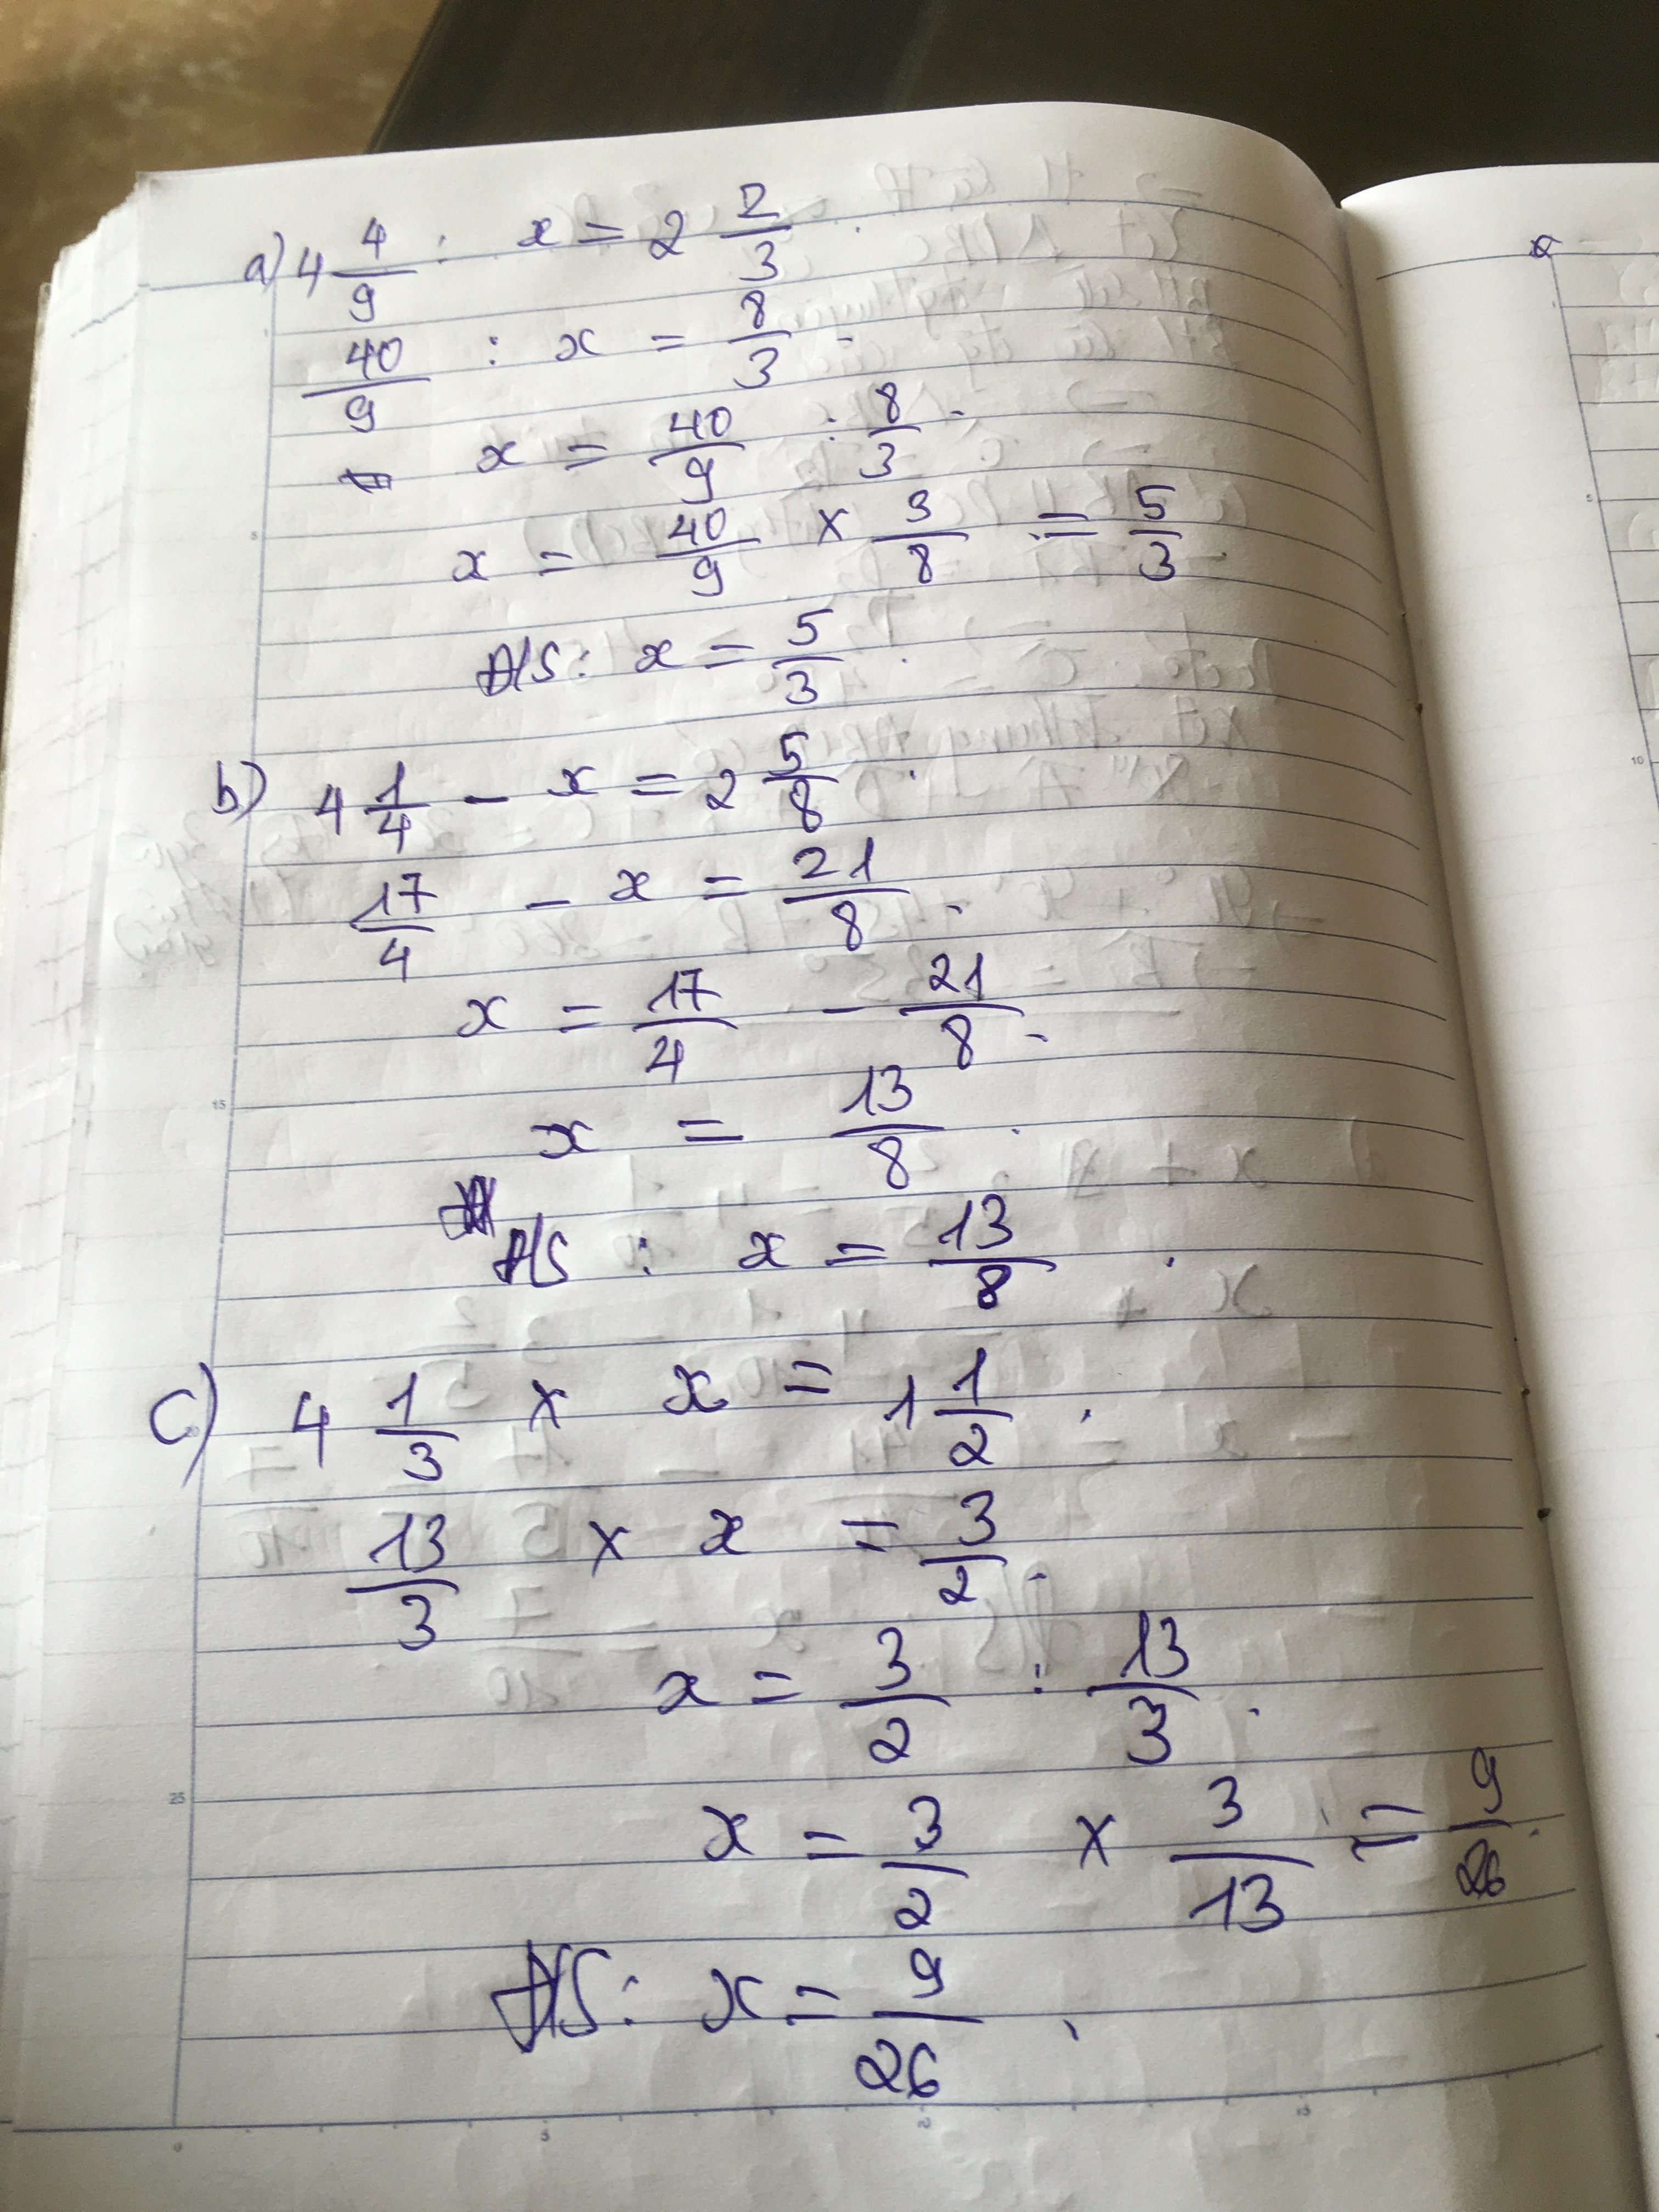 a) 4 4/9 : x = 2 2/3 .
40/9 : x = 8/3 .
x = 40/9 : 8/3 .
x = 40/9 × 3/8 = 5/3 .
Đ/S : x = 5/3 .
b) 4 1/4 - x = 2 5/8 .
17/4 - x = 21/8 .
x = 17/4 - 21/8 .
x = 13/8 .
Đ/S : x = 13/8 .
c) 4 1/3 × x = 1 1/2 .
13/3 × x = 3/2 .
x = 3/2 : 13/3 .
x = 3/2 × 3/13 = 9/26 .
Đ/S : x = 9/26 .